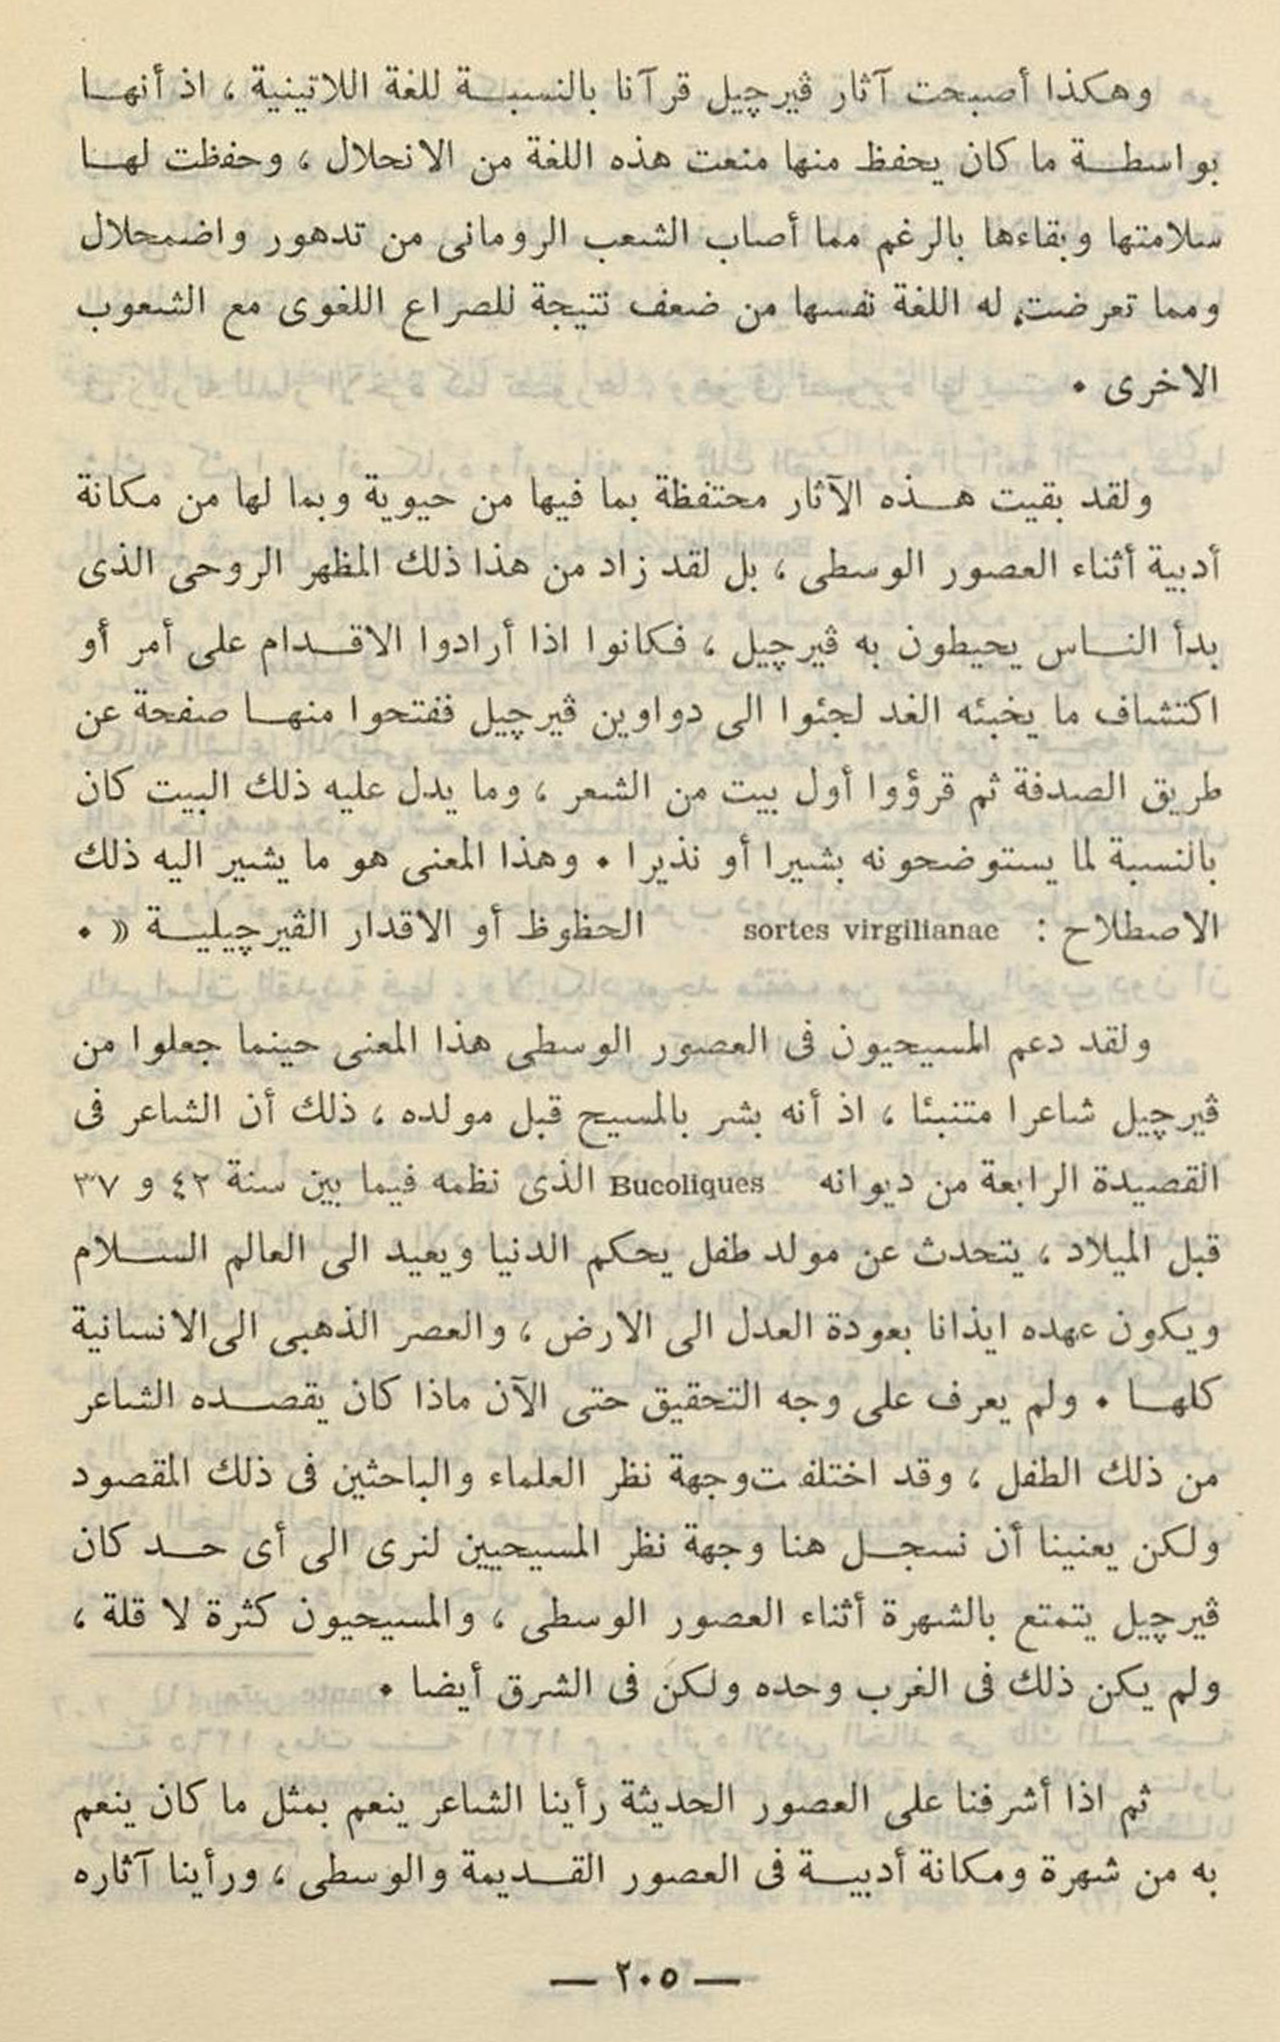 وهكذا أصبحت آثار ڤيرچيل قرآنا بالنسبة للغة اللاتينية ، اذ أنها
بواسطة ما كان يحفظ منها منعت هذه اللغة من الانحلال ، وحفظت لها
سلامتها وبقاءها بالرغم مما أصاب الشعب الرومانى من تدهور واضمحلال
ومما تعرضت له اللغة نفسها من ضعف نتيجة للصراع اللغوى مع الشعوب
الاخرى ٠
ولقد بقيت هذه الآثار محتفظة بما فيها من حيوية وبما لها من مكانة
أدبية أثناء العصور الوسطى ، بل لقد زاد من هذا ذلك المظهر الروحى الذى
بدأ الناس يحيطون به ڤيرچيل ، فكانوا اذا أرادوا الاقدام على أمر أو
اكتشاف ما يخبئه الغد لجئوا الى دواوين ڤيرچيل ففتحوا منها صفحة عن
طريق الصدفة ثم قرؤوا أول بيت من الشعر ، وما يدل عليه ذلك البيت كان
بالنسبة لما يستوضحونه بشيرا أو نذيرا ٠ وهذا المعنى هو ما يشير اليه ذلك
الاصطلاح : sortes virgilianae الحظوظ أو الاقدار الڤيرچيلية » ٠
ولقد دعم المسيحيون فى العصور الوسطى هذا المعنى حينما جعلوا من
ڤيرچيل شاعرا متنبئا ، اذ أنه بشر بالمسيح قبل مولده ، ذلك أن الشاعر فى
القصيدة الرابعة من ديوانه Bucoliques الذى نظمه فيما بين سنة ٤٢ و ٣٧
قبل الميلاد ، يتحدث عن مولد طفل يحكم الدنيا ويعيد الى العالم السلام
ويكون عهده ايذانا بعودة العدل الى الارض ، والعصر الذهبى الى الانسانية
كلها ٠ ولم يعرف على وجه التحقيق حتى الآن ماذا كان يقصده الشاعر
من ذلك الطفل ، وقد اختلفت وجهة نظر العلماء والباحثين فى ذلك المقصود
ولكن يعنينا أن نسجل هنا وجهة نظر المسيحيين لنرى الى أى حد كان
ڤيرچيل يتمتع بالشهرة أثناء العصور الوسطى ، والمسيحيون كثرة لا قلة ،
ولم يكن ذلك فى الغرب وحده ولكن فى الشرق أيضا ٠
ثم اذا أشرفنا على العصور الحديثة رأينا الشاعر ينعم بمثل ما كان ينعم
به من شهرة ومكانة أدبية فى العصور القديمة والوسطى ، ورأينا آثاره
— ٢٠٥ —